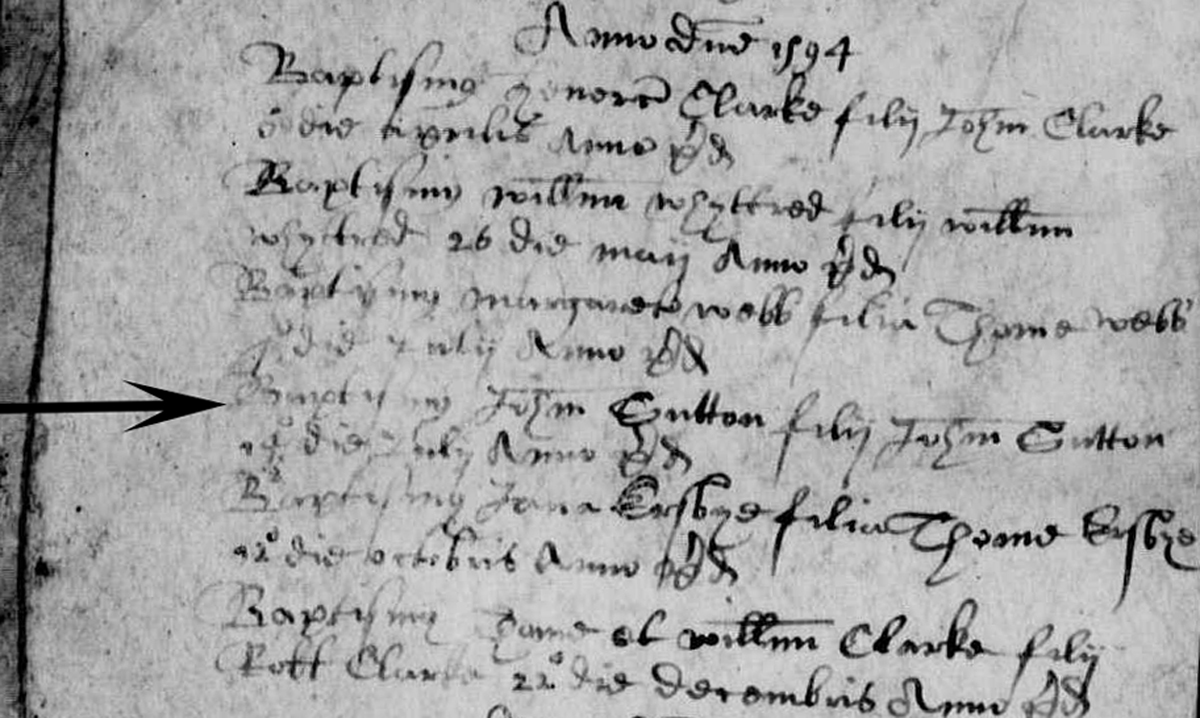 Anno dñe 1594
Baptismus Clarke filij John Clarke
die Aprilis Anno pđ
Baptismus willm̃ whyttred filij willm̃
whyttred 26 die maij Anno pđ
Baptismus margarete webb filia Thome webb
die Julij Anno pđ
Baptismus John Sutton filij John Sutton
14 die July Anno pđ
Baptismus Jana filia Thome
12 die octobris Anno pđ
Baptismus et willm̃ Clarke filij
Robt Clarke 22 die decembris Anno pđ